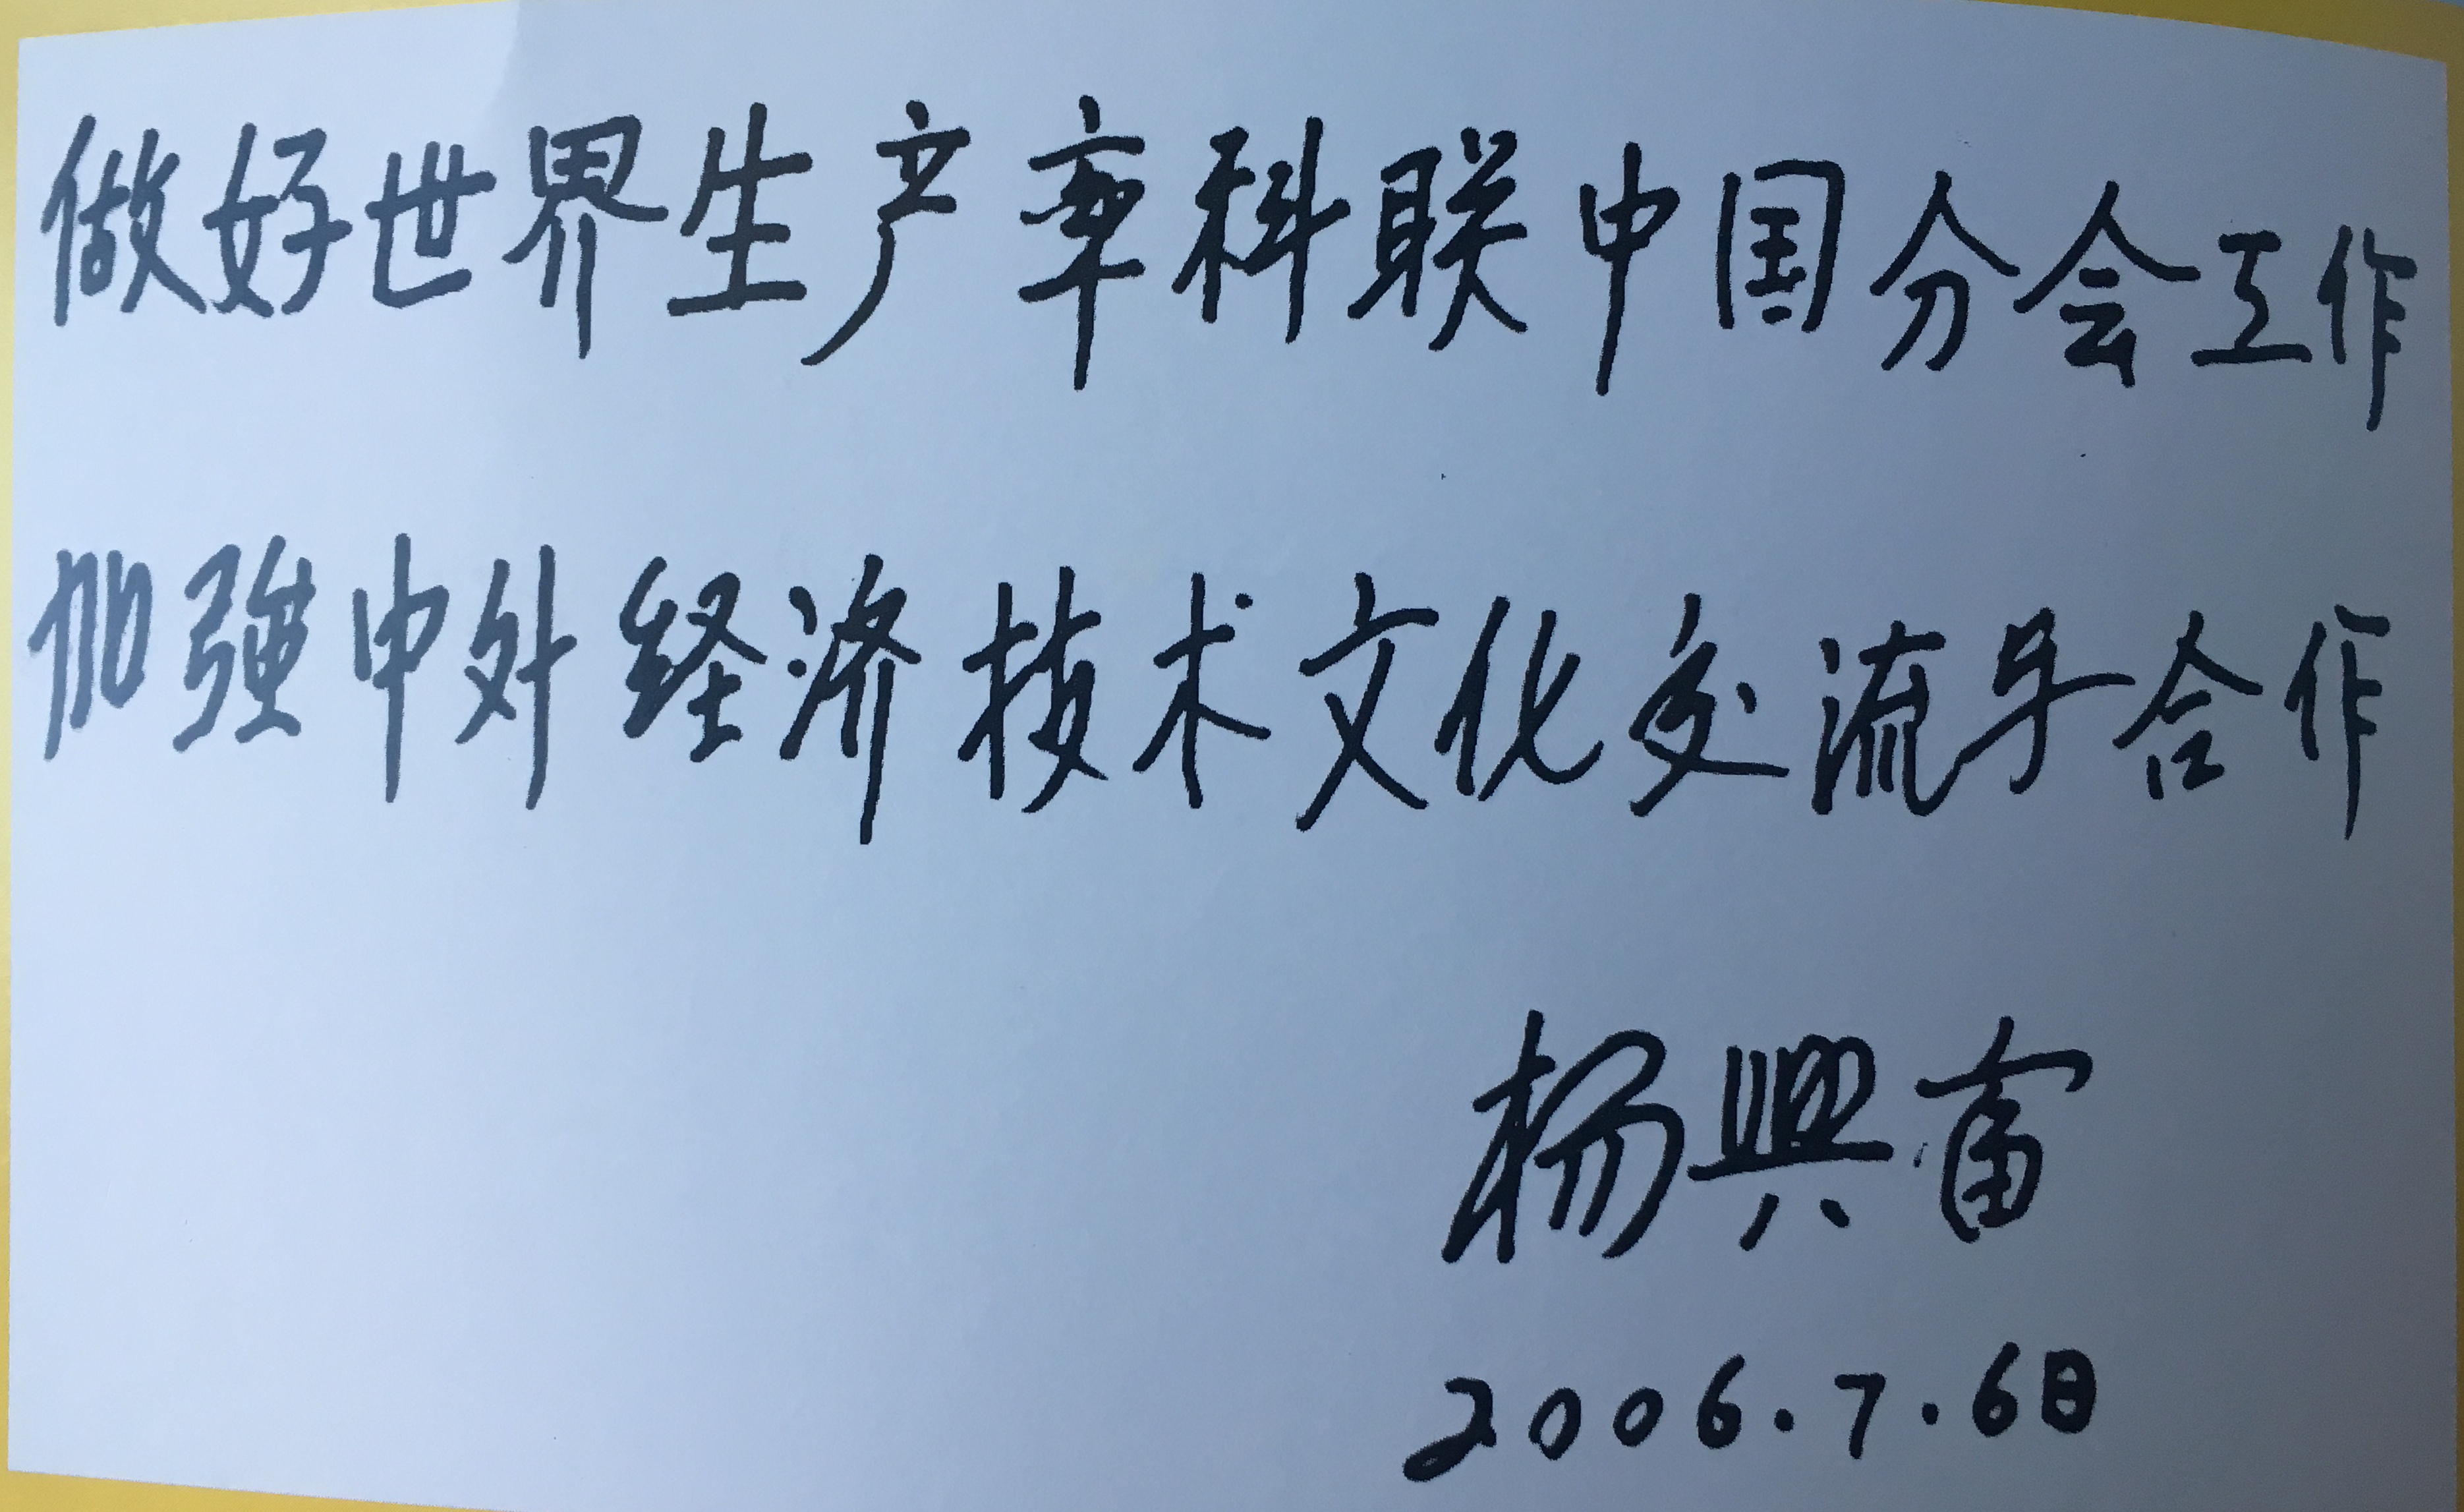 做好世界生产率科联中国分会工作
加强中外经济技术文化交流与合作
杨兴富
2006.7.6日